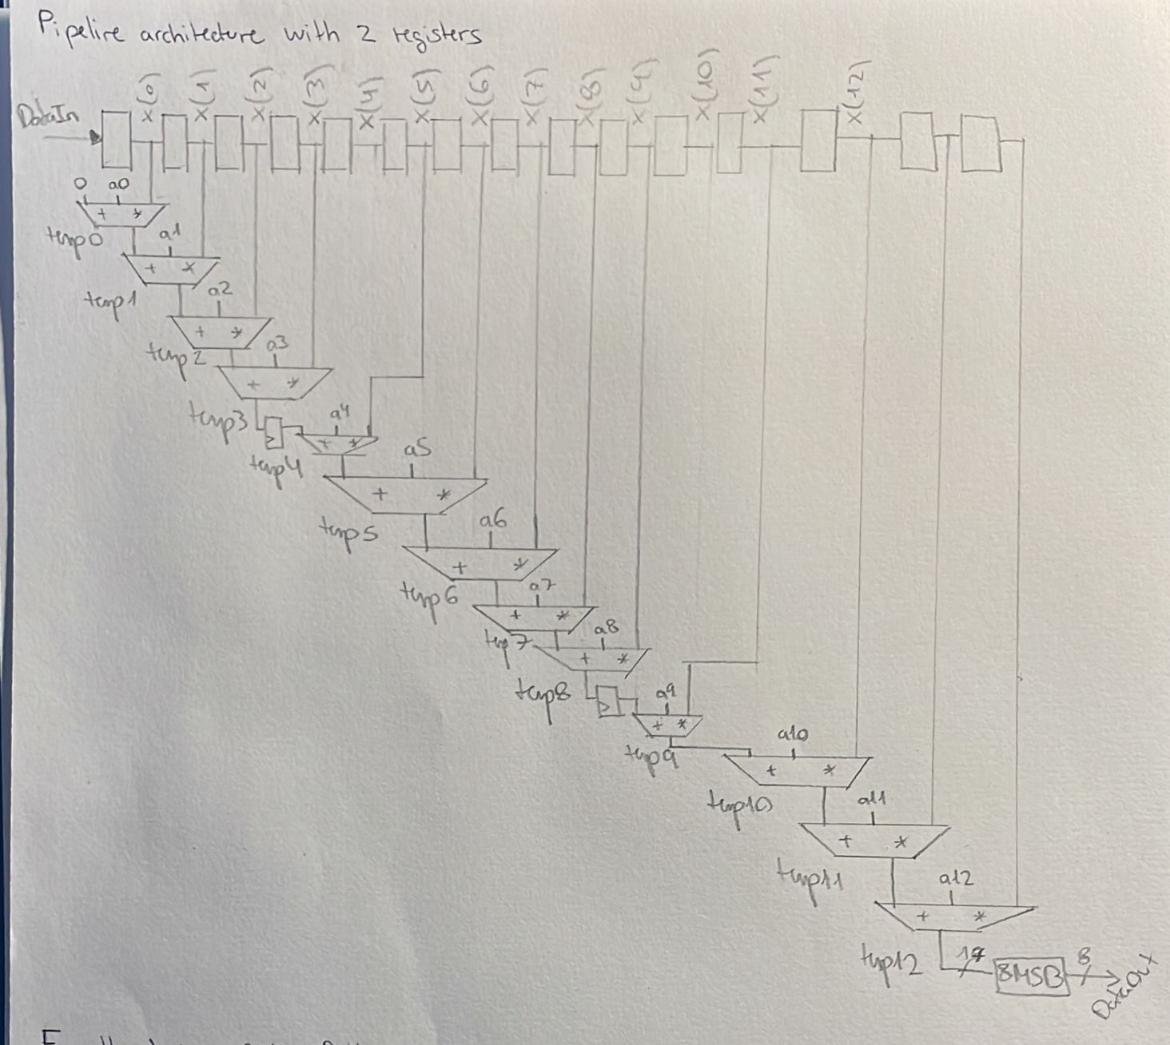 Pipeline architecture with 2 registers
DataIn
x(0)
x(1)
x(2)
x(3)
x(4)
x(5)
x(6)
x(7)
x(8)
x(9)
x(10)
x(11)
x(12)
0 a0
+ *
temp0
a1
+ *
temp1
a2
+ *
temp2
a3
+ *
temp3
a4
+ *
temp4
a5
+ *
temp5
a6
+ *
temp6
a7
+ *
temp7
a8
+ *
temp8
a9
+ *
temp9
a10
+ *
temp10
a11
+ *
temp11
a12
+ *
temp12
8MSB
8
DataOut